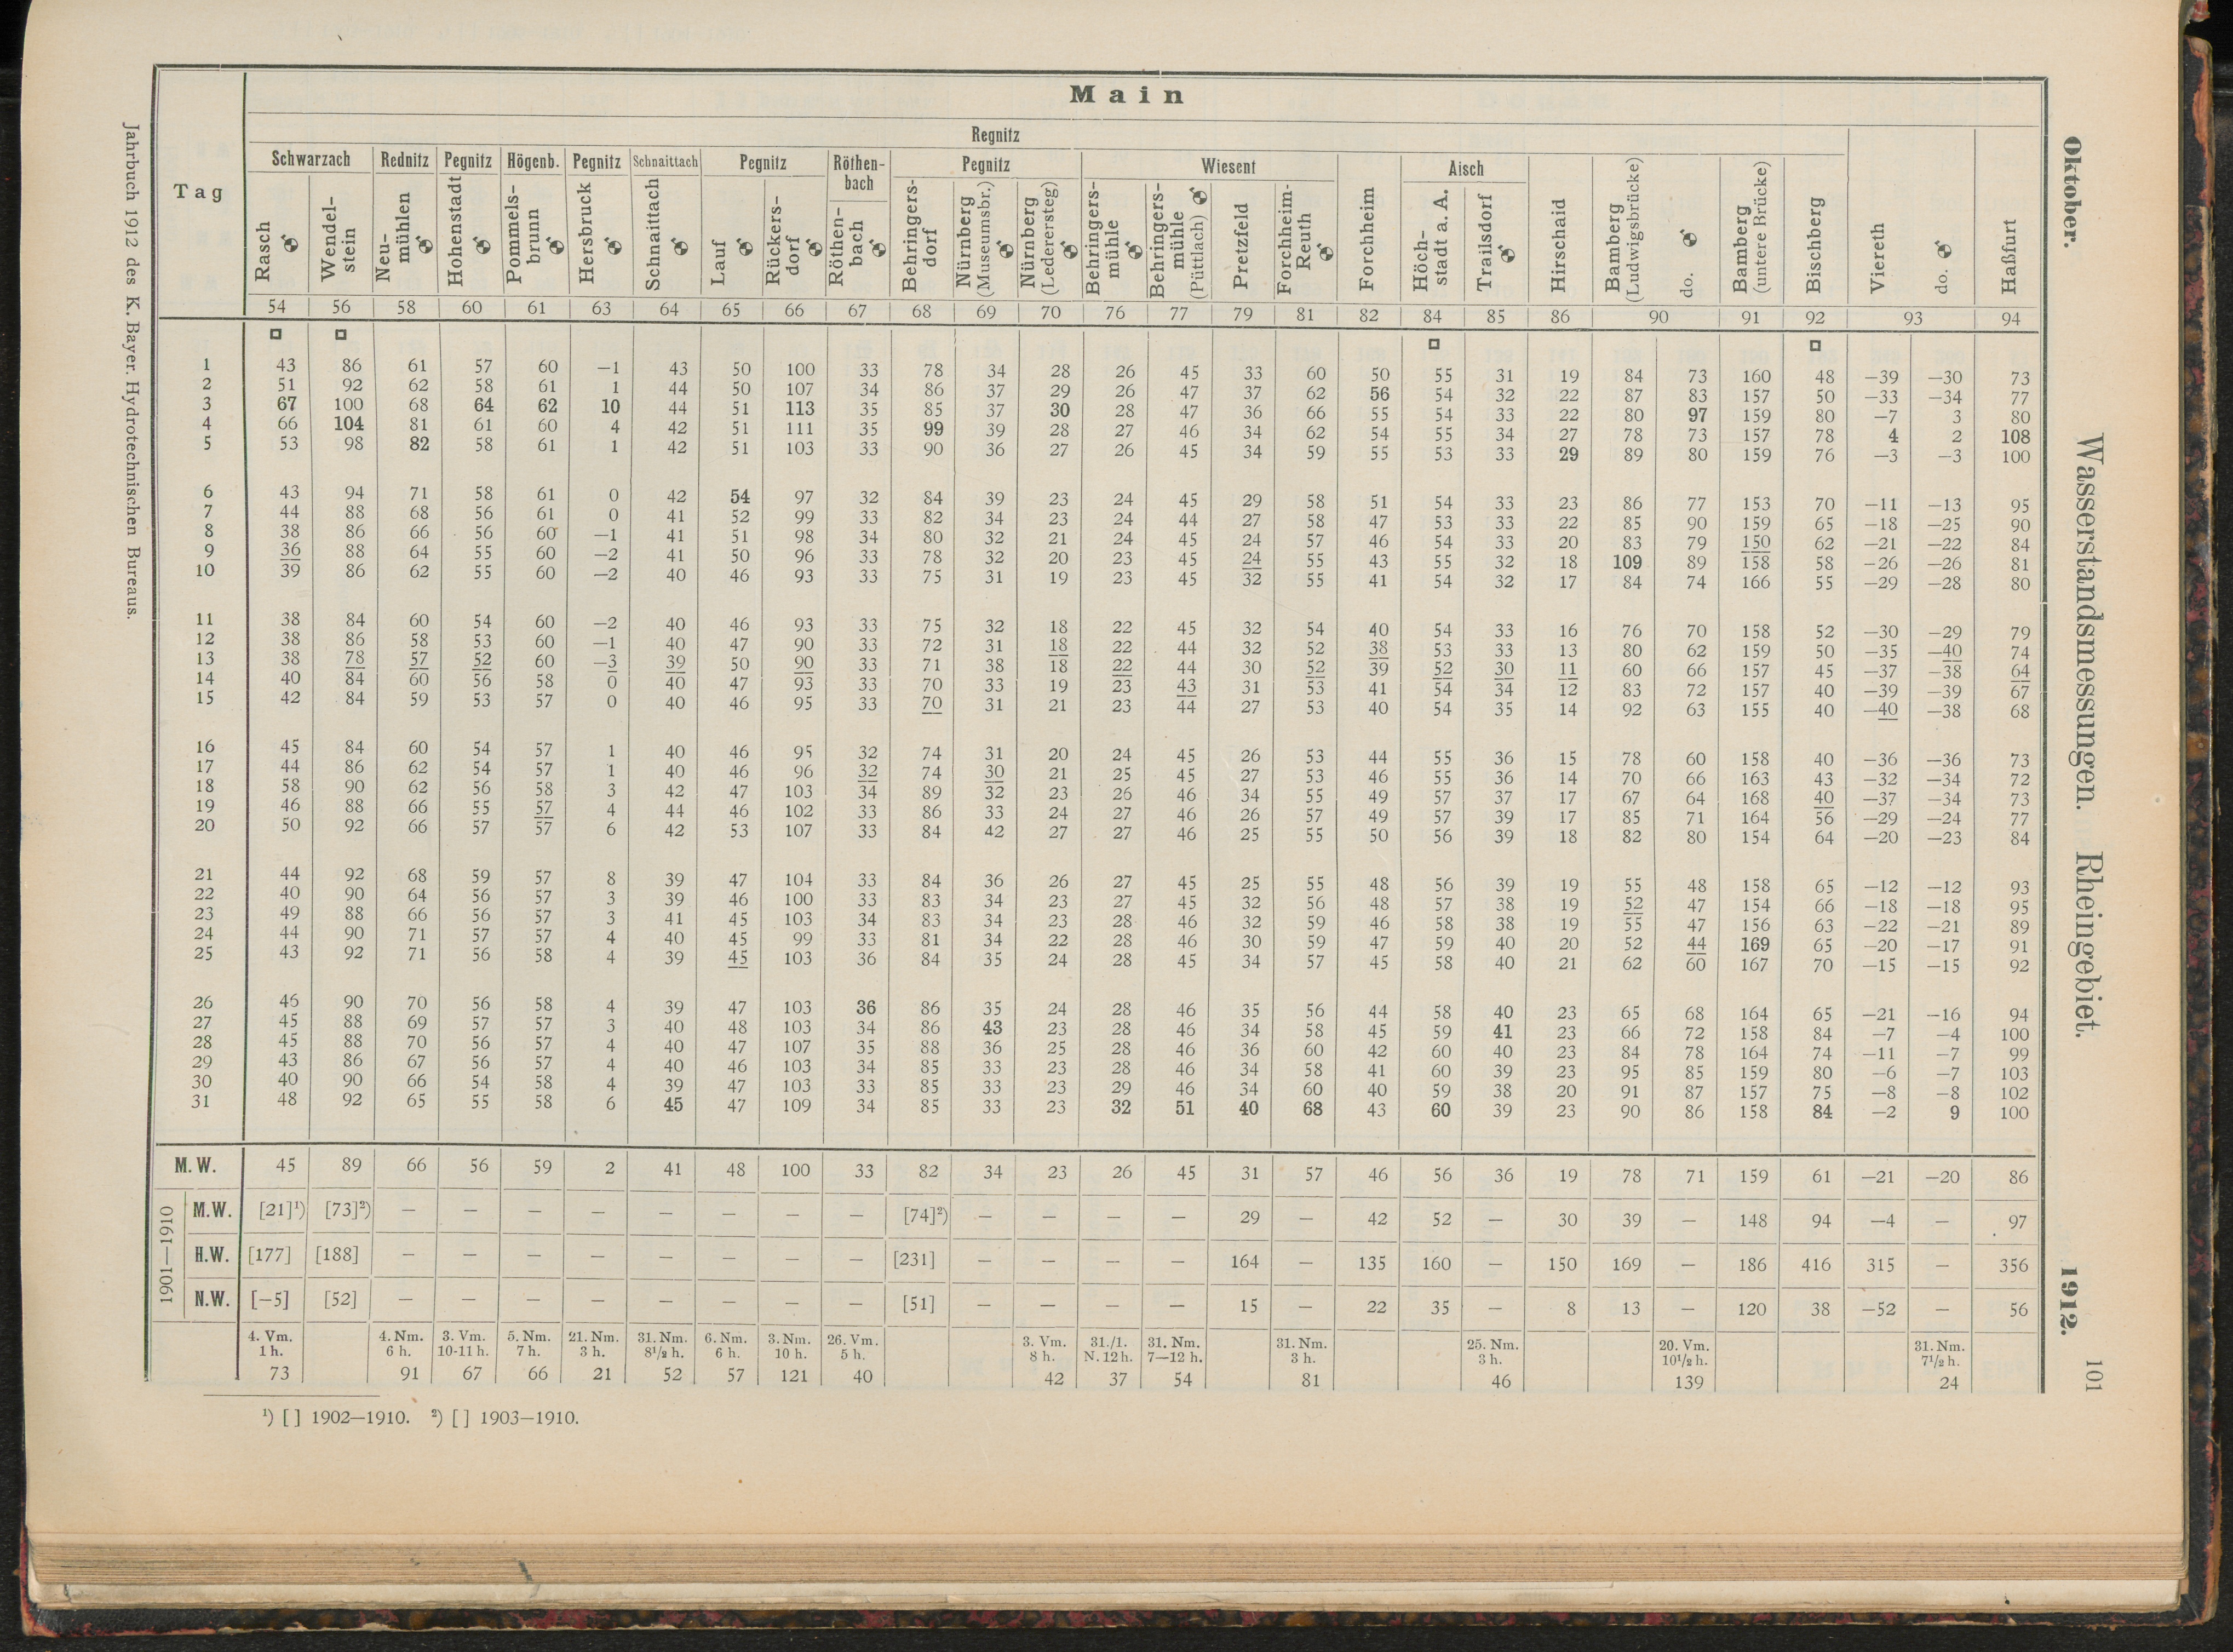 Oktober. Wasserstandsmessungen. Rheingebiet. 1912. 101
Main
Regnitz
Tag Schwarzach Rednitz Pegnitz Högenb. Pegnitz Schnaittach Pegnitz Röthen-bach Pegnitz Wiesent Aisch
Rasch Wendel-stein Neu-mühlen Hohenstadt Pommels-brunn Hersbruck Schnaittach Lauf Rückers-dorf Röthen-bach Behringers-dorf Nürnberg (Museumsbr.) Nürnberg (Ledeersteg) Behringers-mühle Behringers-mühle (Püttlach) Pretzfeld Forchheim-Reuth Forchheim Höch-stadt a. A. Trailsdorf Hirschaid Bamberg (Ludwigsbrücke) do. Bamberg (untere Brücke) Bischberg Viereth do. Haßfurt
54 56 58 60 61 63 64 65 66 67 68 69 70 76 77 79 81 82 84 85 86 90 91 92 93 94
1 43 86 61 57 60 —1 43 50 100 33 78 34 28 26 45 33 60 50 55 31 19 84 73 160 48 —39 —30 73
2 51 92 62 58 61 1 44 50 107 34 86 37 29 26 47 37 62 56 54 32 22 87 83 157 50 —33 —34 77
3 67 100 68 64 62 10 44 51 113 35 85 37 30 28 47 36 66 55 54 33 22 80 97 159 80 —7 3 80
4 66 104 81 61 60 4 42 51 111 35 99 39 28 27 46 34 62 54 55 34 27 78 73 157 78 4 2 108
5 53 98 82 58 61 1 42 51 103 33 90 36 27 26 45 34 59 55 53 33 29 89 80 159 76 —3 —3 100
6 43 94 71 58 61 0 42 54 97 32 84 39 23 24 45 29 58 51 54 33 23 86 77 153 70 —11 —13 95
7 44 88 68 56 61 0 41 52 99 33 82 34 23 24 44 27 58 47 53 33 22 85 90 159 65 —18 —25 90
8 38 86 66 56 60 —1 41 51 98 34 80 32 21 24 45 24 57 46 54 33 20 83 79 150 62 —21 —22 84
9 36 88 64 55 60 —2 41 50 96 33 78 32 20 23 45 24 55 43 55 32 18 109 89 158 58 —26 —26 81
10 39 86 62 55 60 —2 40 46 93 33 75 31 19 23 45 32 55 41 54 32 17 84 74 166 55 —29 —28 80
11 38 84 60 54 60 —2 40 46 93 33 75 32 18 22 45 32 54 40 54 33 16 76 70 158 52 —30 —29 79
12 38 86 58 53 60 —1 40 47 90 33 72 31 18 22 44 32 52 38 53 33 13 80 62 159 50 —35 —40 74
13 38 78 57 52 60 —3 39 50 90 33 71 38 18 22 44 30 52 39 52 30 11 60 66 157 45 —37 —38 64
14 40 84 60 56 58 0 40 47 93 33 70 33 19 23 43 31 53 41 54 34 12 83 72 157 40 —39 —39 67
15 42 84 59 53 57 0 40 46 95 33 70 31 21 23 44 27 53 40 54 35 14 92 63 155 40 —40 —38 68
16 45 84 60 54 57 1 40 46 95 32 74 31 20 24 45 26 53 44 55 36 15 78 60 158 40 —36 —36 73
17 44 86 62 54 57 1 40 46 96 32 74 30 21 25 45 27 53 46 55 36 14 70 66 163 43 —32 —34 72
18 58 90 62 56 58 3 42 47 103 34 89 32 23 26 46 34 55 49 57 37 17 67 64 168 40 —37 —34 73
19 46 88 66 55 57 4 44 46 102 33 86 33 24 27 46 26 57 49 57 39 17 85 71 164 56 —29 —24 77
20 50 92 66 57 57 6 42 53 107 33 84 42 27 27 46 25 55 50 56 39 18 82 80 154 64 —20 —23 84
21 44 92 68 59 57 8 39 47 104 33 84 36 26 27 45 25 55 48 56 39 19 55 48 158 65 —12 —12 93
22 40 90 64 56 57 3 39 46 100 33 83 34 23 27 45 32 56 48 57 38 19 52 47 154 66 —18 —18 95
23 49 88 66 56 57 3 41 45 103 34 83 34 23 28 46 32 59 46 58 38 19 55 47 156 63 —22 —21 89
24 44 90 71 57 57 4 40 45 99 33 81 34 22 28 46 30 59 47 59 40 20 52 44 169 65 —20 —17 91
25 43 92 71 56 58 4 39 45 103 36 84 35 24 28 45 34 57 45 58 40 21 62 60 167 70 —15 —15 92
26 46 90 70 56 58 4 39 47 103 36 86 35 24 28 46 35 56 44 58 40 23 65 68 164 65 —21 —16 94
27 45 88 69 57 57 3 40 48 103 34 86 43 23 28 46 34 58 45 59 41 23 66 72 158 84 —7 —4 100
28 45 88 70 56 57 4 40 47 107 35 88 36 25 28 46 36 60 42 60 40 23 84 78 164 74 —11 —7 99
29 43 86 67 56 57 4 40 46 103 34 85 33 23 28 46 34 58 41 60 39 23 95 85 159 80 —6 —7 103
30 40 90 66 54 58 4 39 47 103 33 85 33 23 29 46 34 60 40 59 38 20 91 87 157 75 —8 —8 102
31 48 92 65 55 58 6 45 47 109 34 85 33 23 32 51 40 68 43 60 39 23 90 86 158 84 —2 9 100
M. W. 45 89 66 56 59 2 41 48 100 33 82 34 23 26 45 31 57 46 56 36 19 78 71 159 61 —21 —20 86
1901—1910
M.W. [21]¹) [73]²) — — — — — — — — [74]²) — — — — 29 — 42 52 — 30 39 — 148 94 —4 — 97
H.W. [177] [188] — — — — — — — — [231] — — — — 164 — 135 160 — 150 169 — 186 416 315 — 356
N.W. [—5] [52] — — — — — — — — [51] — — — — 15 — 22 35 — 8 13 — 120 38 —52 — 56
4. Vm. 4. Nm. 3. Vm. 5. Nm. 21. Nm. 31. Nm. 6. Nm. 3. Nm. 26. Vm. 3. Vm. 31./1. 31. Nm. 31. Nm. 25. Nm. 20. Vm. 31. Nm.
1 h. 6 h. 10-11 h. 7 h. 3 h. 8½ h. 6 h. 10 h. 5 h. 8 h. N. 12 h. 7—12 h. 3 h. 3 h. 10½ h. 7½ h.
73 91 67 66 21 52 57 121 40 42 37 54 81 46 139 24
¹) [ ] 1902—1910. ²) [ ] 1903—1910.
Jahrbuch 1912 des K. Bayer. Hydrotechnischen Bureaus.